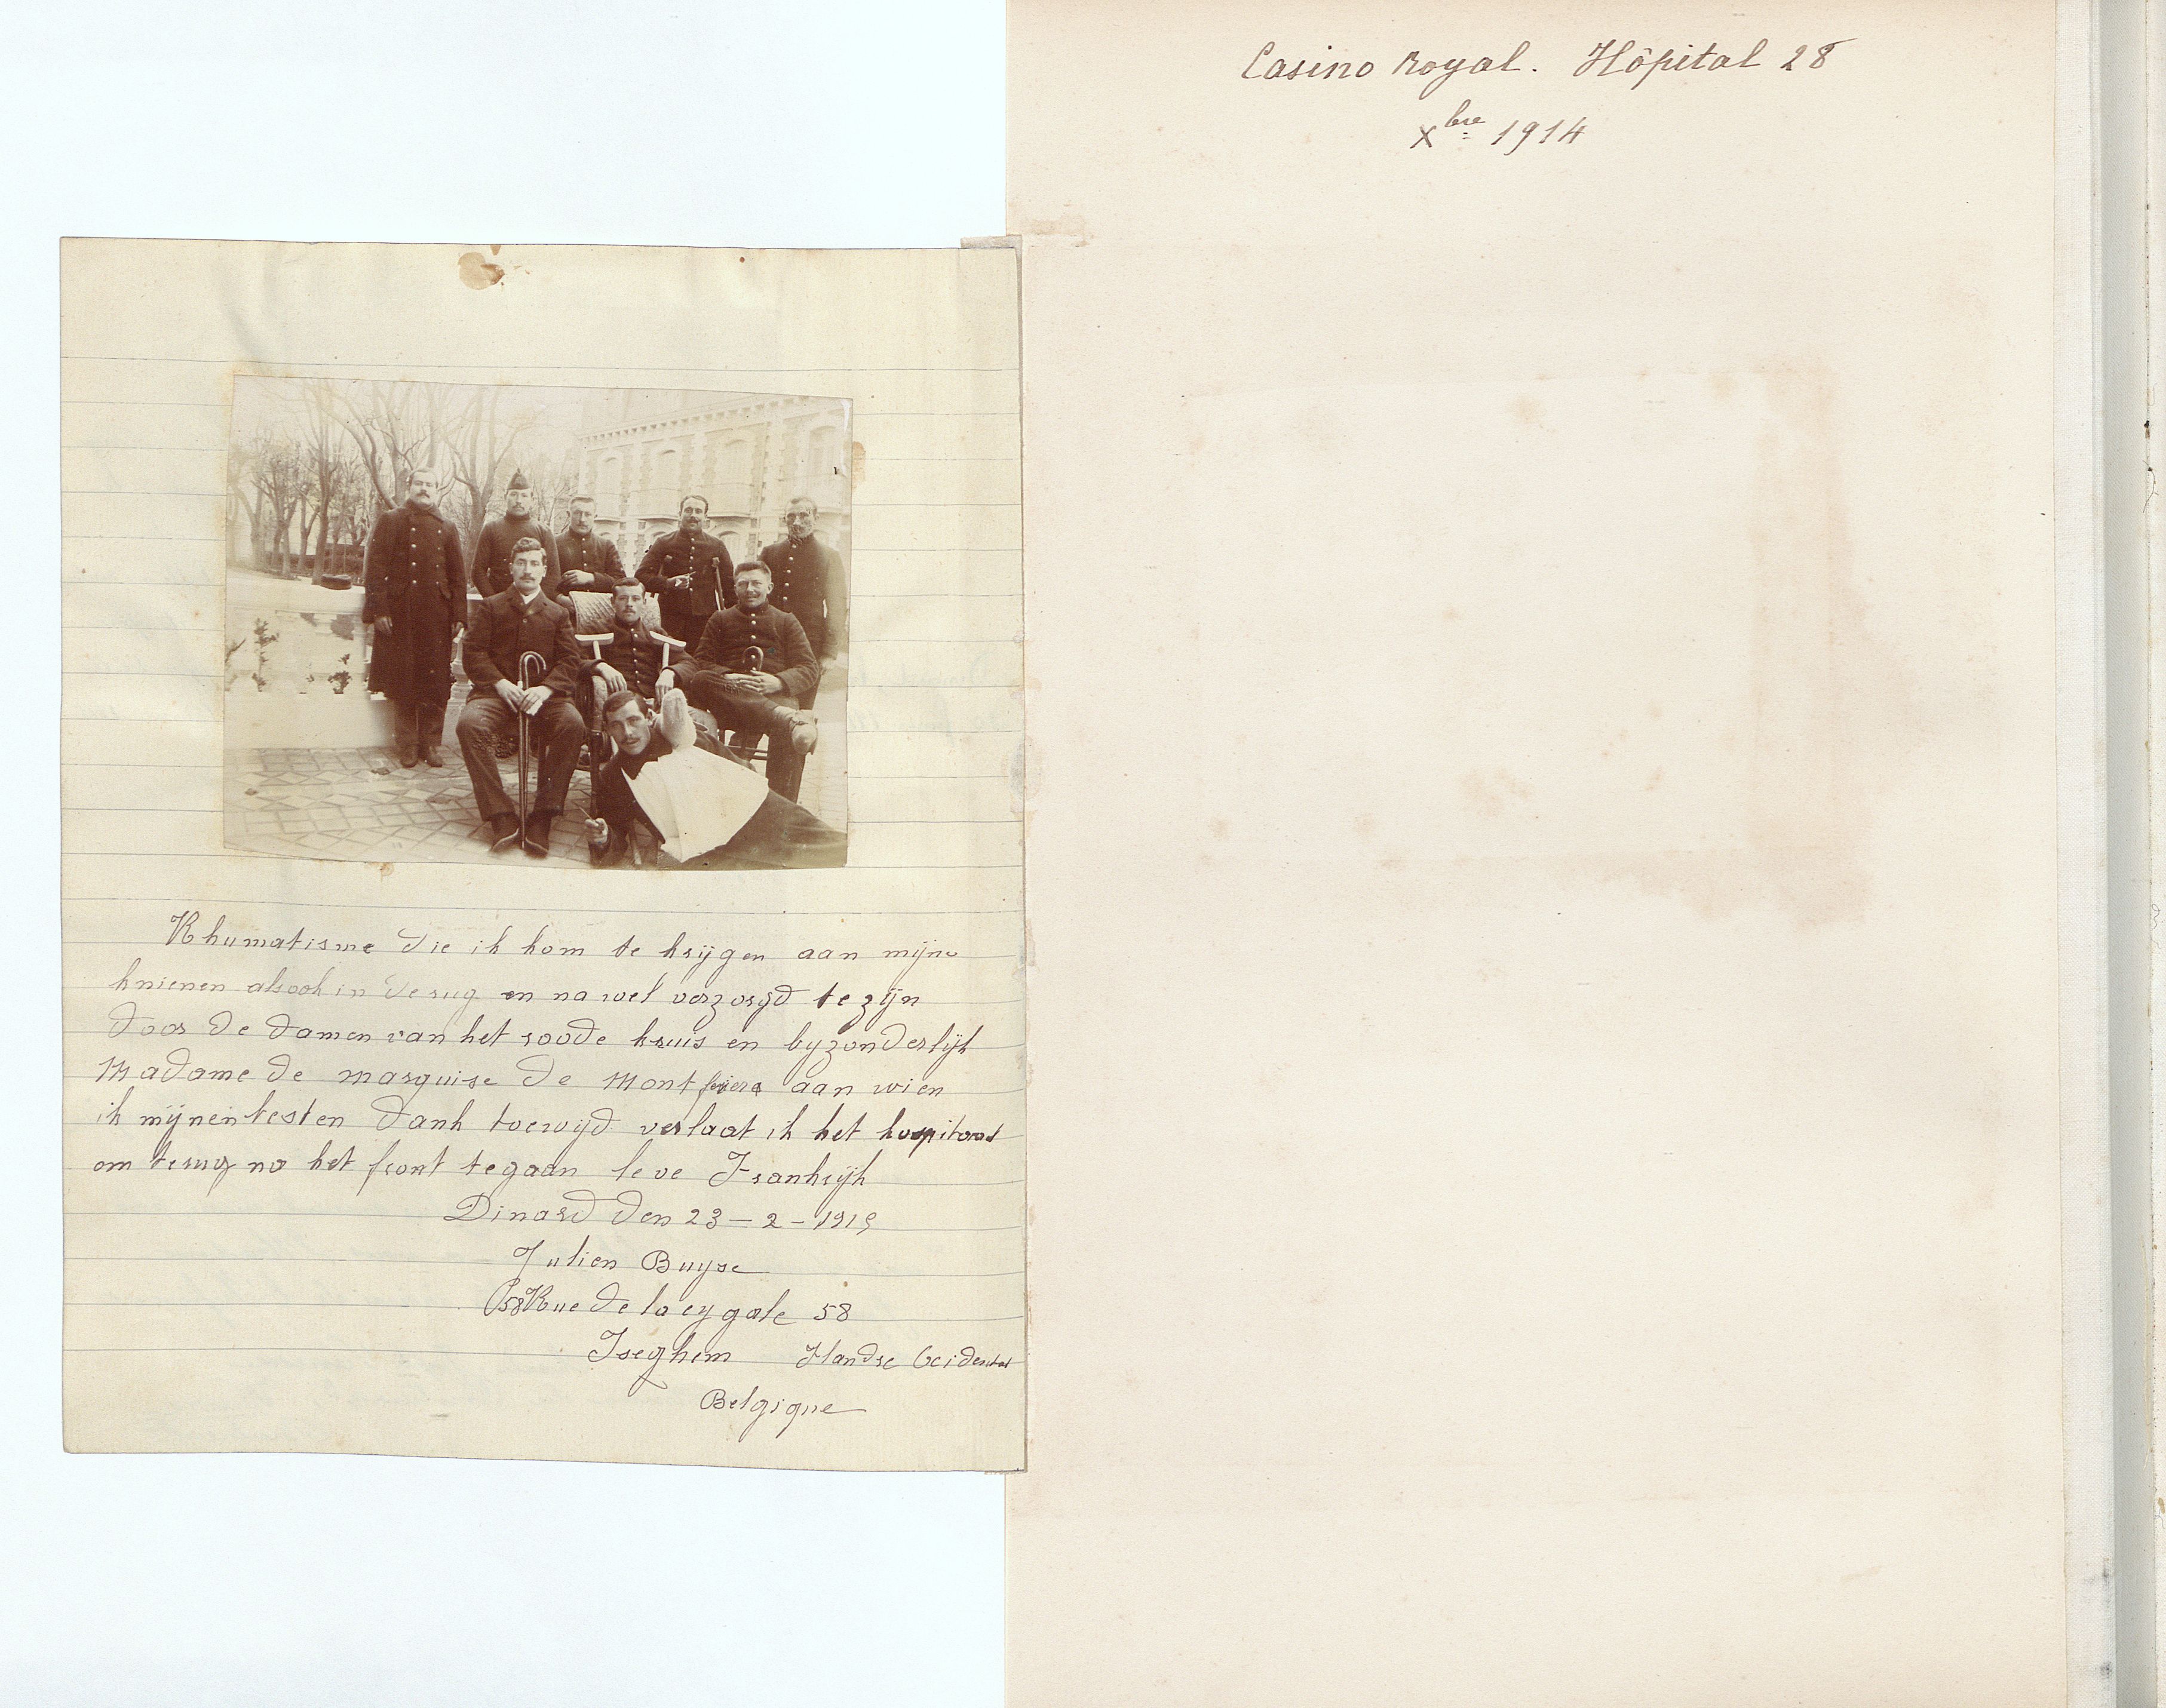 Casino Royal. Hôpital 28
Xbre 1914
Rhumatisme die ik kom te krijgen aan mijne
knienen alsook in de rug en na wel verzorgd te zijn
door de damen van het roode kruis en byzonderlijk
Madame de marquise de Mont aan wien
ik mijnen besten dank toewijd verlaat ik het hospitaal
om terug na het front te gaan leve Frankrijk
Dinard den 23 - 2 - 1915
Julien Buyse
58 Rue de la cygale 58
Iseghem Flandre Occidental
Belgique